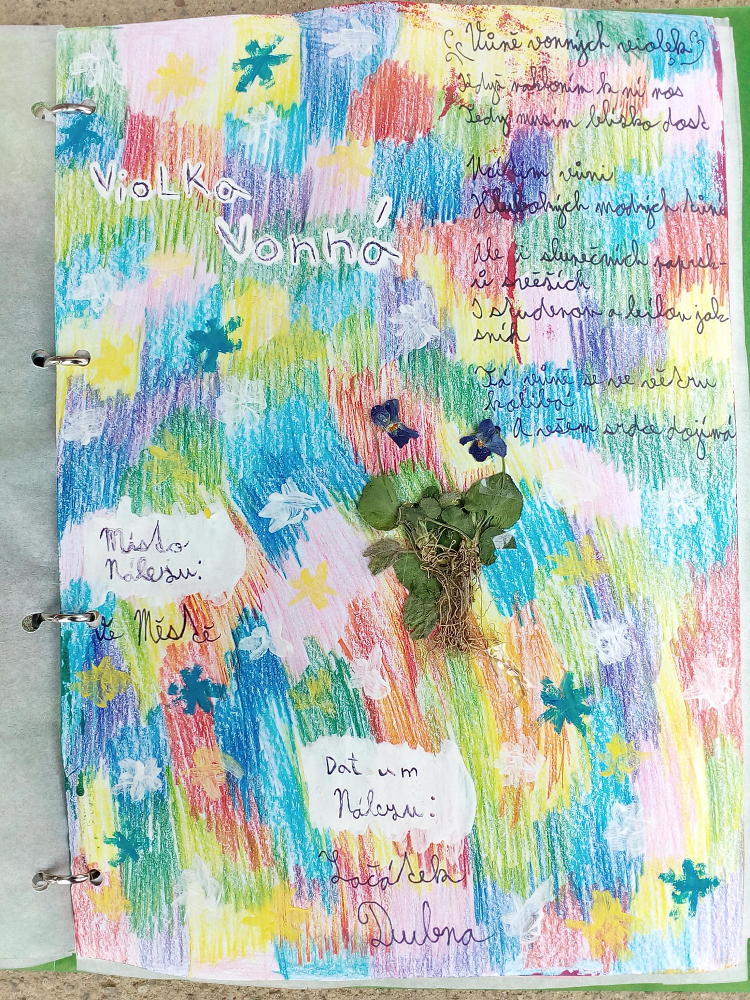 Vůně vonných violek
Když nakloním k ní nos
Tedy musím blízko dost
Nátim vůni
Hlubokých modrých tůní
Ale i slunečních paprsk-
ů svěžích
I studenou a bílou jak
sníh
Tá vůně se ve větru
kolibá
A všem srdce dojímá
VioLKa
Vonná
Místo
Nálezu:
Ve Městě
Datum
Nálezu:
Začátek
Dubna